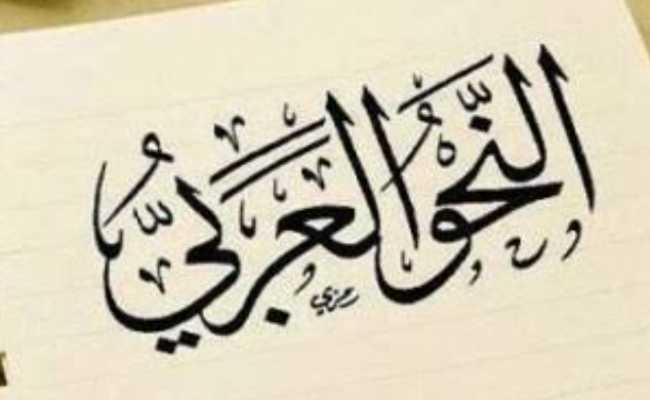 النَّحْوُ العَرَبِيُّ
رمزي